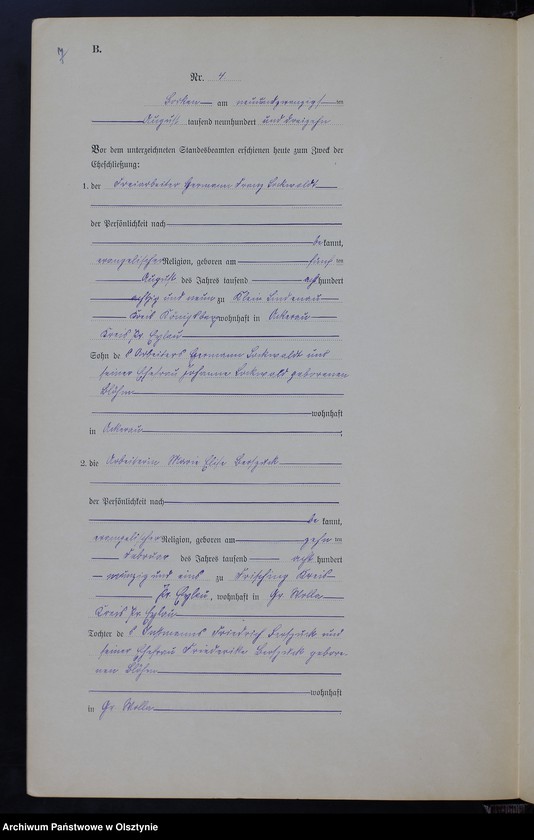 B.
Nr. 4
Borken am neunundzwanzigsten
August tausend neunhundert und dreizehn
Vor dem unterzeichneten Standesbeamten erschienen heute zum Zweck der
Eheschließung:
1. der Freiarbeiter Hermann Franz Lockwaldt
der Persönlichkeit nach
be kannt,
evangelischer Religion, geboren am fünften
August des Jahres tausend acht hundert
achtzig und neun zu Klein Lindenau
Kreis Königsberg wohnhaft in Ackerau
Kreis Pr. Eylau
Sohn des Arbeiters Hermann Lockwaldt und
seiner Ehefrau Johanne Lockwald geborenen
Blöhm
wohnhaft
in Ackerau
2. die Arbeiterin Marie Elise
der Persönlichkeit nach
be kannt,
evangelischer Religion, geboren am zehnten
Februar des Jahres tausend acht hundert
neunzig und eins zu Frisching Kreis
Pr. Eylau, wohnhaft in Gr Wolla
Kreis Pr. Eylau
Tochter des Friedrich und
seiner Ehefrau Friederike gebore-
nen Blöhm
wohnhaft
in Gr Wolla
Archiwum Państwowe w Olsztynie